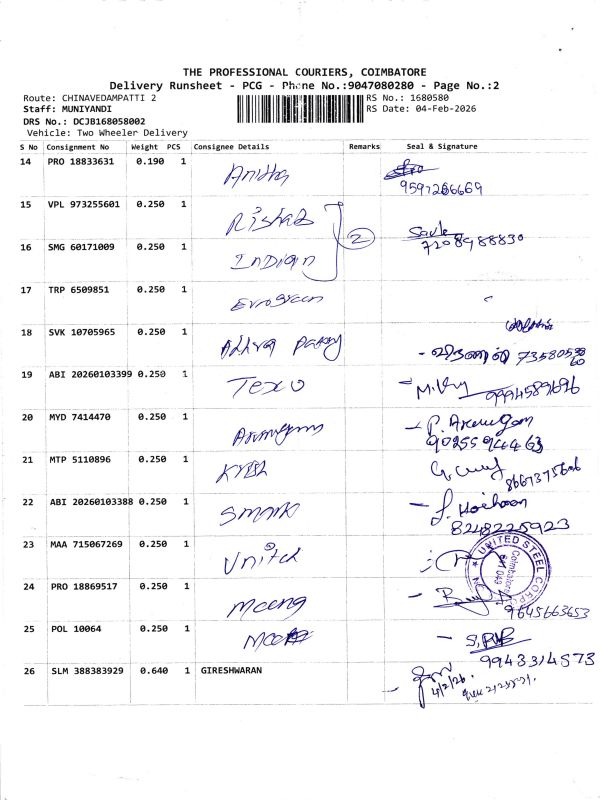 THE PROFESSIONAL COURIERS, COIMBATORE
Delivery Runsheet - PCG - Phone No.:9047080280 - Page No.:2
Route: CHINAVEDAMPATTI 2
RS No.: 1680580
Staff: MUNIYANDI
RS Date: 04-Feb-2026
DRS No.: DCJB168058002
Vehicle: Two Wheeler Delivery
S No Consignment No Weight PCS Consignee Details Remarks Seal & Signature
14 PRO 18833631 0.190 1 Anitha
9597266669
15 VPL 973255601 0.250 1 Rishab
2
7208988830
16 SMG 60171009 0.250 1 Indian
17 TRP 6509851 0.250 1 Evrogreen
18 SVK 10705965 0.250 1
19 ABI 20260103399 0.250 1 Texo
9994589696
20 MYD 7414470 0.250 1 Arumugam
P. Arumugam
9025594463
21 MTP 5110896 0.250 1
8667375606
22 ABI 20260103388 0.250 1 Smark
8248225923
23 MAA 715067269 0.250 1 United
UNITED STEEL CORPO
Coimbatore
641 049
24 PRO 18869517 0.250 1 Meena
9645663653
25 POL 10064 0.250 1
9943314573
26 SLM 388383929 0.640 1 GIRESHWARAN
4/2/26.